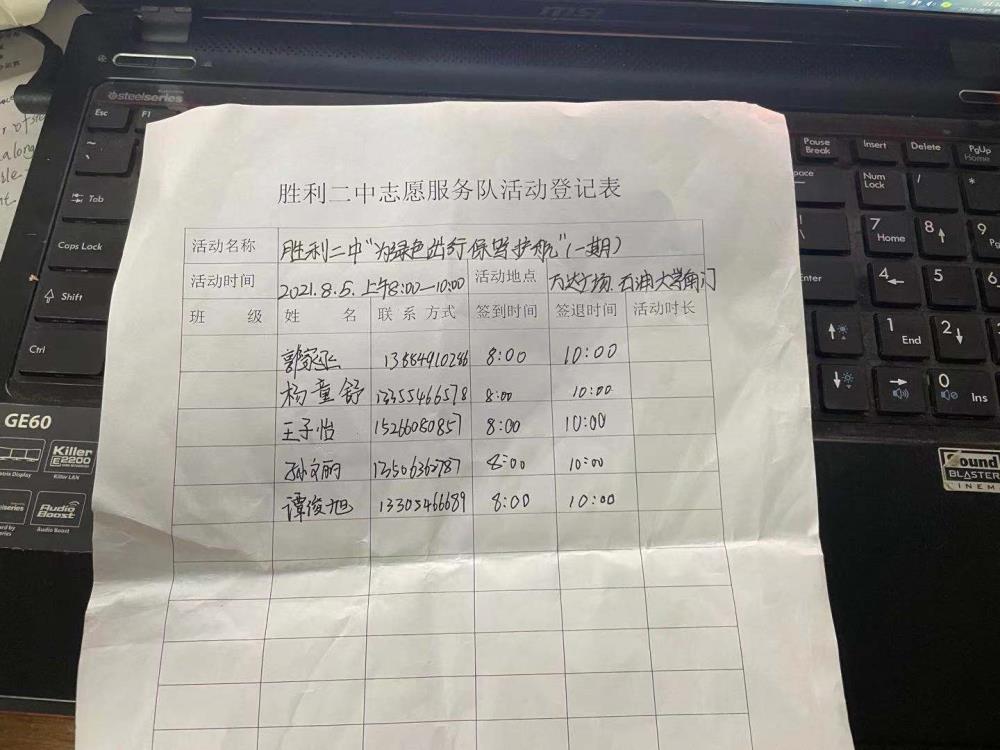 msi
steelseries
Esc
F1
Pause
Break
Insert
Delete
PgUp
Home
Tab
Num
Lock
/
*
Caps Lock
7
Home
8
9
Shift
4
5
Ctrl
1
End
2
0
Ins
GE60
Killer
E2200
Killer LAN
Audio
Boost
Audio Boost
Sound
BLASTER
CINEM
胜利二中志愿服务队活动登记表
活动名称 胜利二中“为绿色出行保驾护航”(一期)
活动时间 2021.8.5.上午8:00—10:00 活动地点 万达广场.石油大学南门
班 级 姓 名 联系方式 签到时间 签退时间 活动时长
13884910286 8:00 10:00
杨童舒 13355466578 8:00 10:00
王子怡 15266080857 8:00 10:00
孙文丽 13506362787 8:00 10:00
谭俊旭 13305466689 8:00 10:00